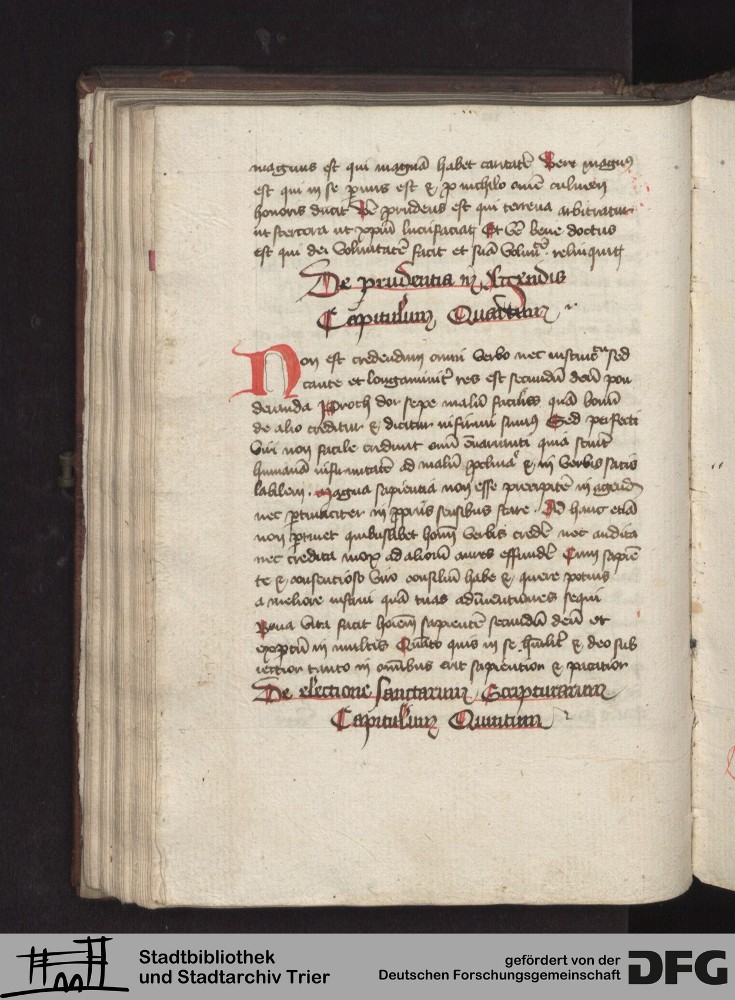 magnus est qui magnā habet caritatē Vere magnꝰ
est qui in se pͣuus est & p nichilo om̄e culmen
honoris ducit Ve prudens est qui terrena arbitratur
ut stercora ut xpm̄ lucrifaciat Et Ve bene doctus
est qui dei Voluntatē facit et suā Volutͣe relinquit
De prudentia in Agendis
Capitulum Quartum
Non est credendum omni Verbo nec instinctui sed
caute et longanimitͬ res est secundū deū pon
deranda Proch dor sepe malū facilius quā bonū
de alio creditur & dicitur infirmi sumꝰ Sed perfecti
Viri non facile credunt omī enarranti quia sciūt
humanā infirmitatē ad malū procliuā & in Verbis satis
labilem . Magna sapientia non esse precipitē in agendis
nec ptinaciter in propriis sensibus stare . Ad hanc etiā
non ptinet quibuslibet hom̄ Verbis credere nec audita
nec credita mox ad aliorū aures effundere Cum sapiē
te & consciencioso Viro consiliū habe & quere potius
a meliore instrui quā tuas adīuentiones sequi
Bona Vita facit hoīem sapientē secundū deū et
expertū in multis Quāto quis in se humilior & deo sub
iectior tanto in omībus erit sapiencior & pacatior
De electione Sanctarum Scripturarum
Capitulum Quintum
Stadtbibliothek
und Stadtarchiv Trier
gefördert von der
Deutschen Forschungsgemeinschaft
DFG